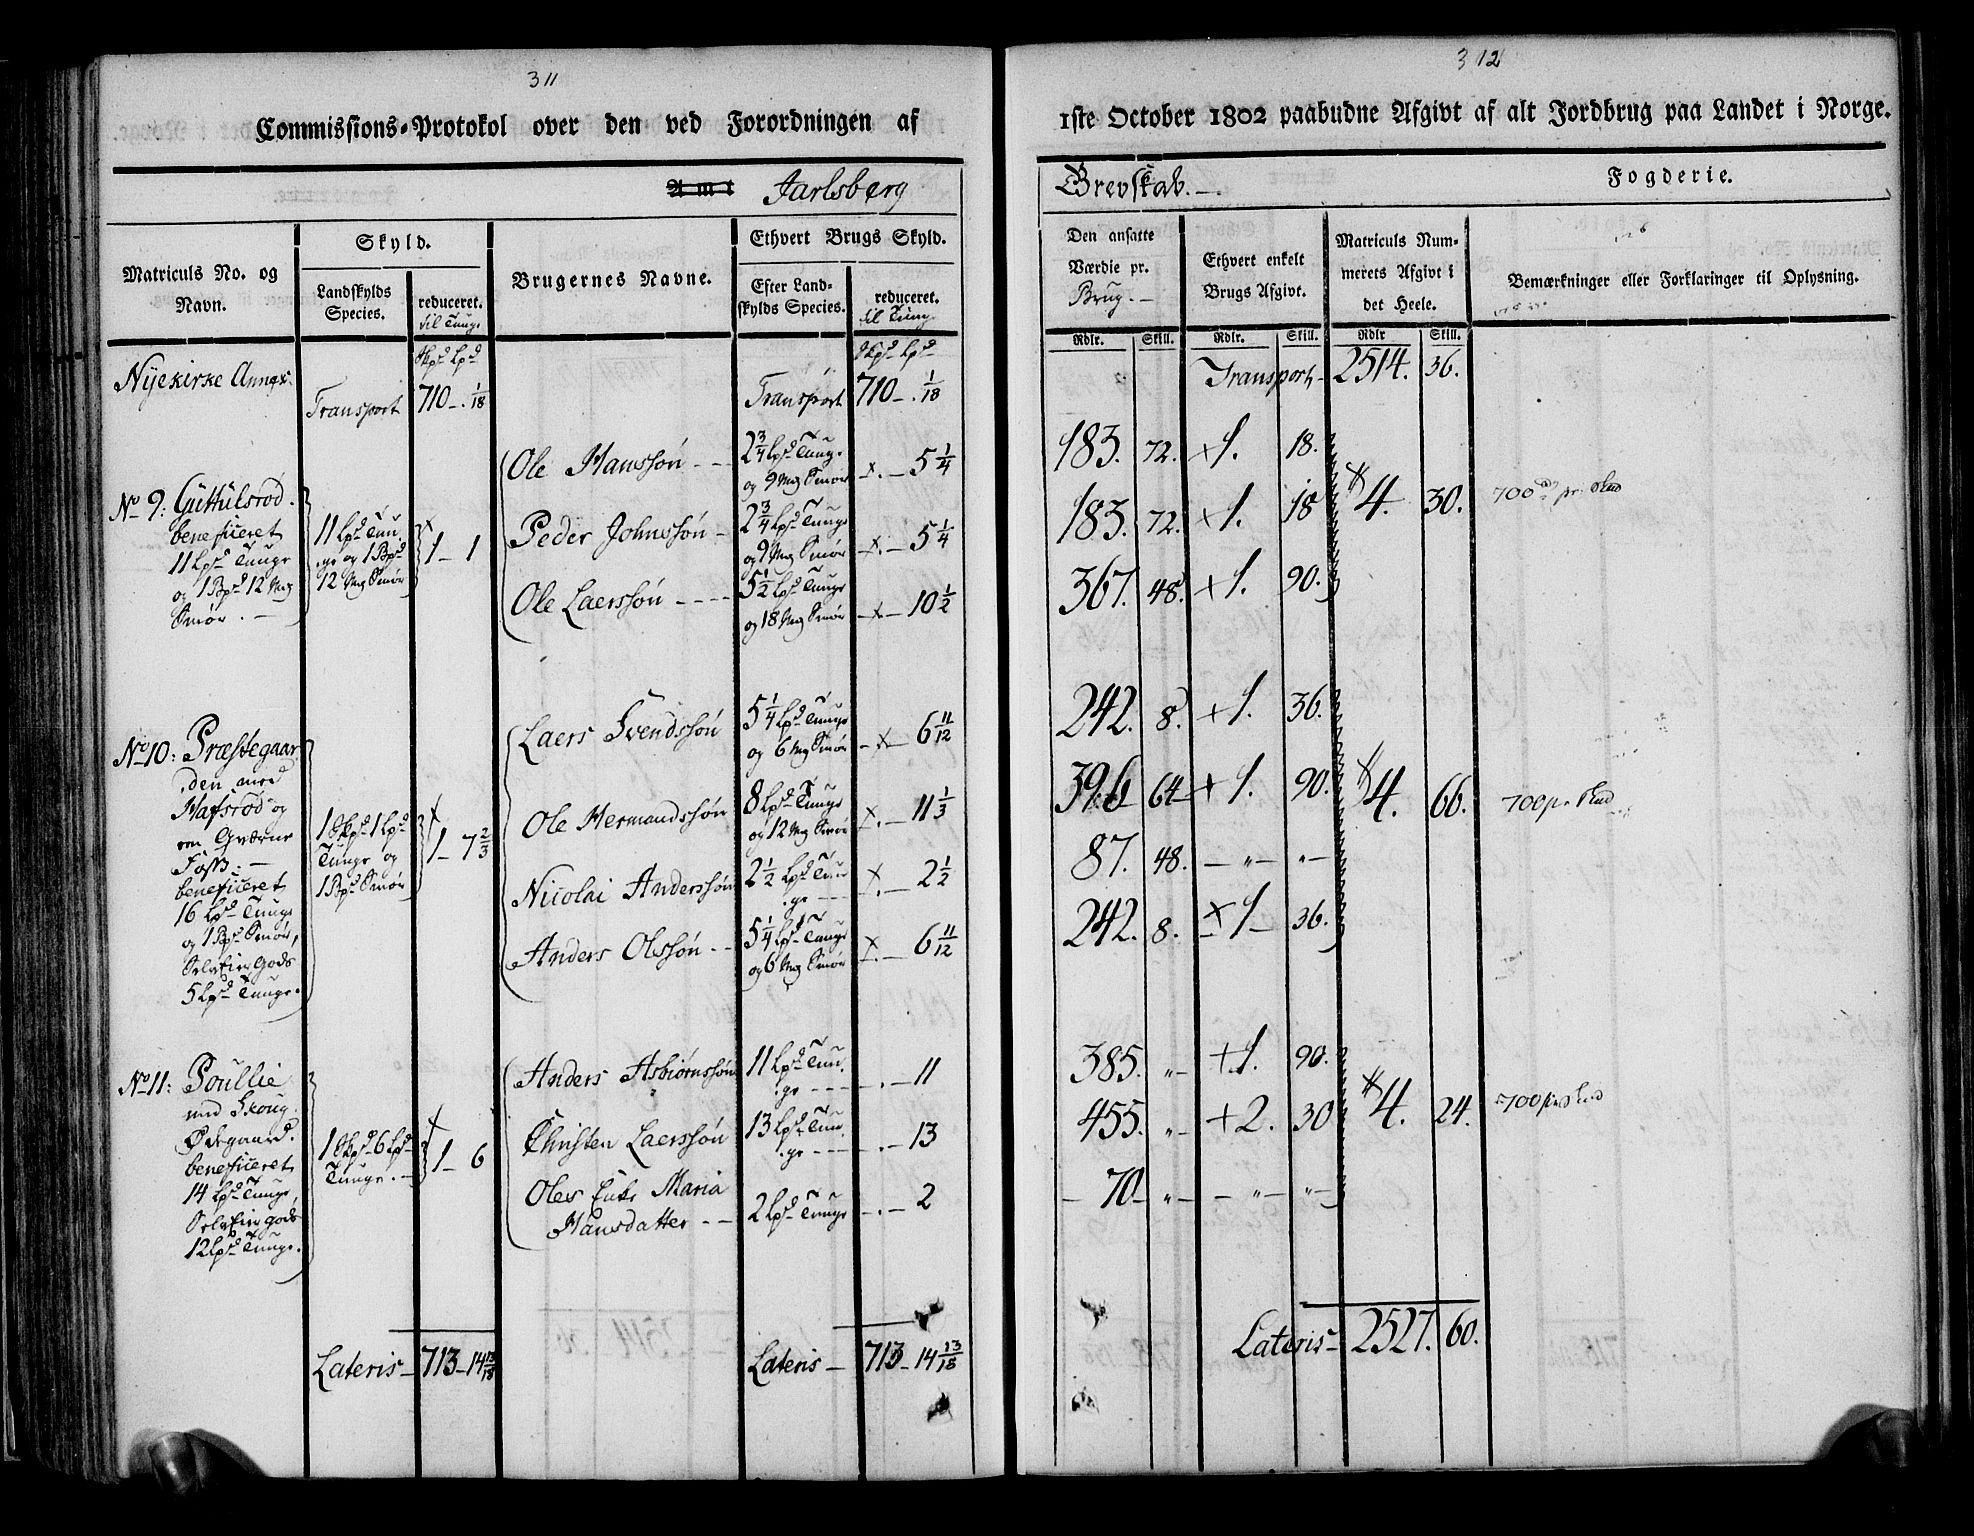 311
Commissions-Protokol over den ved Forordningen af
Amt Jarlsberg
Matriculs No. og Navn.
Skyld.
Landskylds Species.
reduceret. til Tunge
Brugernes Navne.
Ethvert Brugs Skyld.
Efter Landskylds Species.
reduceret. til Tung.
Nyekirke Annex.
Skpd Lpd
Skpd Lpd
Transport 710 - . 1/18
Transport 710 - . 1/18
No 9: Guttulsrød.
beneficeret
11 Lpd Tunge
og 1 Bpd 12 Mg
Smør. -
11 Lpd Tun-
ge og 1 Bpd
12 Mg Smør
1 - 1
Ole Hanssøn - - -
2 3/4 Lpd Tunge
og 9 Mg Smør
5 1/4
Peder Johnssøn -
2 3/4 Lpd Tunge
og 9 Mg Smør
5 1/4
Ole Laerssøn - - - -
5 1/2 Lpd Tunge
og 18 Mg Smør
10 1/2
No 10: Præstegaar-
den med
Hafsrød og
en Qværne
Foss. -
beneficeret
16 Lpd Tunge
og 1 Bpd Smør,
Selveier Gods
5 Lpd Tunge.
1 Skpd 1 Lpd
Tunge og
1 Bpd Smør
1 - 7 2/3
Laers Svendssøn
5 1/4 Lpd Tunge
og 6 Mg Smør
6 11/12
Ole Hermandssøn
8 Lpd Tunge
og 12 Mg Smør
11 1/3
Nicolai Anderssøn
2 1/2 Lpd Tun-
ge - - -
2 1/2
Anders Olssøn - -
5 1/4 Lpd Tunge
og 6 Mg Smør
6 11/12
No 11: Poullie
med Skoug.
Ødegaard.
beneficeret
14 Lpd Tunge,
Selveier gods
12 Lpd Tunge.
1 Skpd 6 Lpd
Tunge. -
1 - 6
Anders Asbiørnssøn
11 Lpd Tun-
ge - - - -
- . - 11
Christen Laerssøn
13 Lpd Tun-
ge - - -
- . - 13
Oles Enke Maria
Hansdatter - -
2 Lpd Tunge
- . - 2
Lateris - 713 - 14 13/18
Lateris - 713 - 14 13/18
312
1ste October 1802 paabudne Afgivt af alt Jordbrug paa Landet i Norge.
Grevskab. - Fogderie.
Den ansatte Værdie pr. Brug. -
Ethvert enkelt Brugs Afgivt.
Matriculs Nummerets Afgivt i det Heele.
Bemærkninger eller Forklaringer til Oplysning.
Rdlr. Skill. Rdlr. Skill. Rdlr Skill.
Transport - 2514. 36.
183. 72. 1. 18.
183. 72. 1. 18 4. 30. 700
367. 48. 1. 90.
242. 8. 1. 36.
396 64 1. 90. 4. 66. 700
87. 48. - " - " -
242. 8. 1 - 36.
385. " - 1. 90.
455. " - 2. 30 4. 24. 700
- 70 - " - - " - " -
Lateris - 2527. 60.